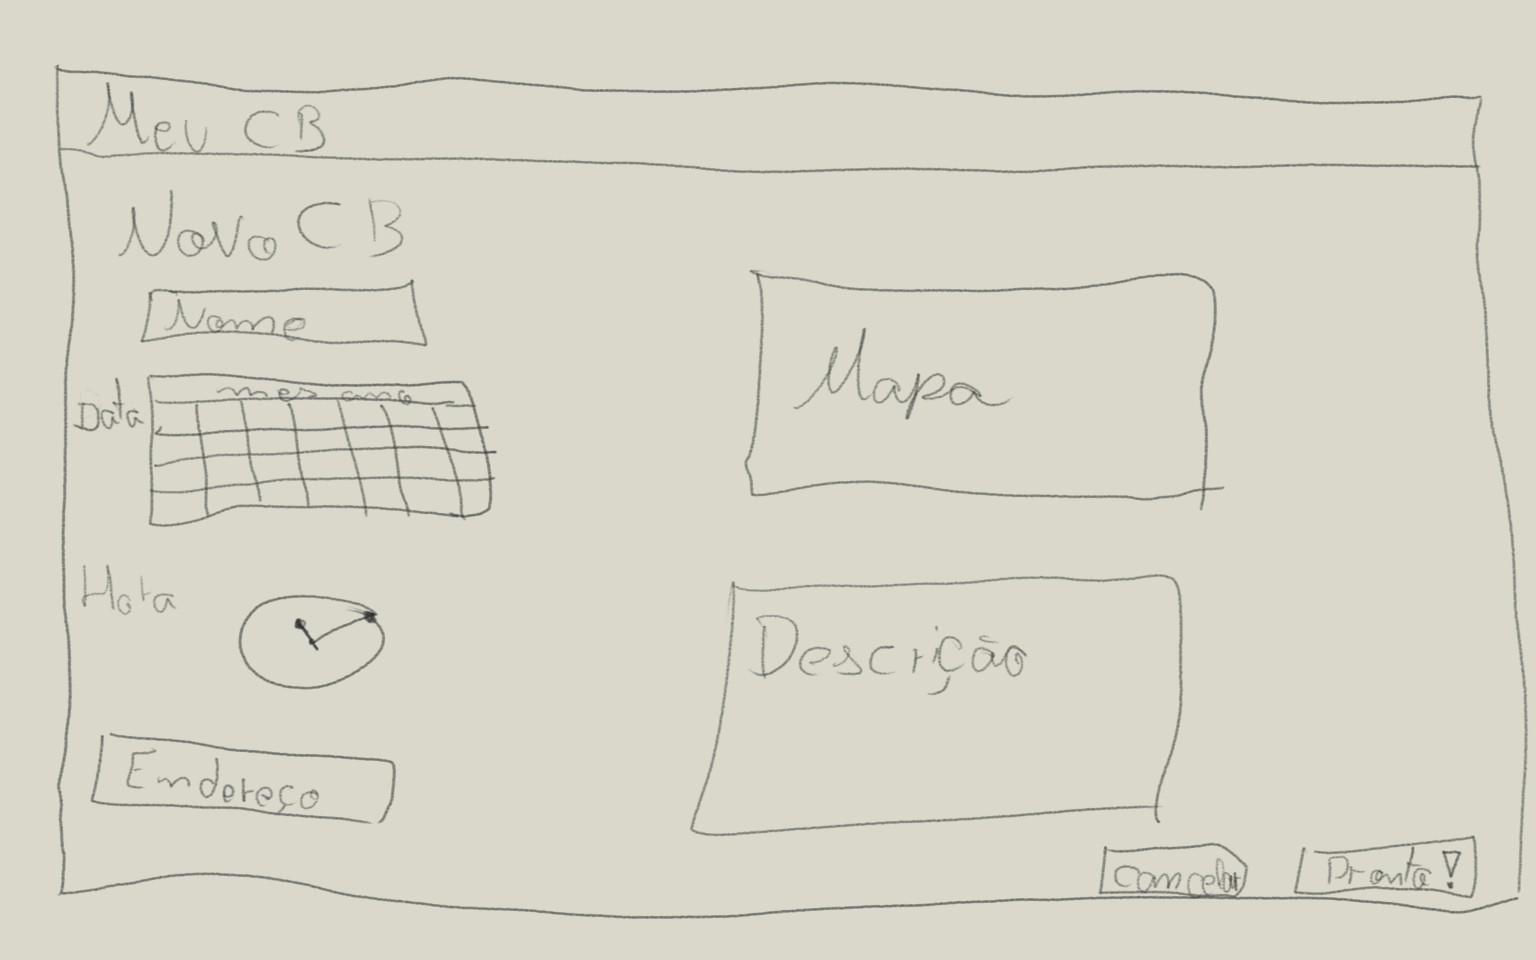 Meu CB
Novo CB
Nome
Data
mes ano
Hora
Endereço
Mapa
Descrição
Cancelar
Pronto!